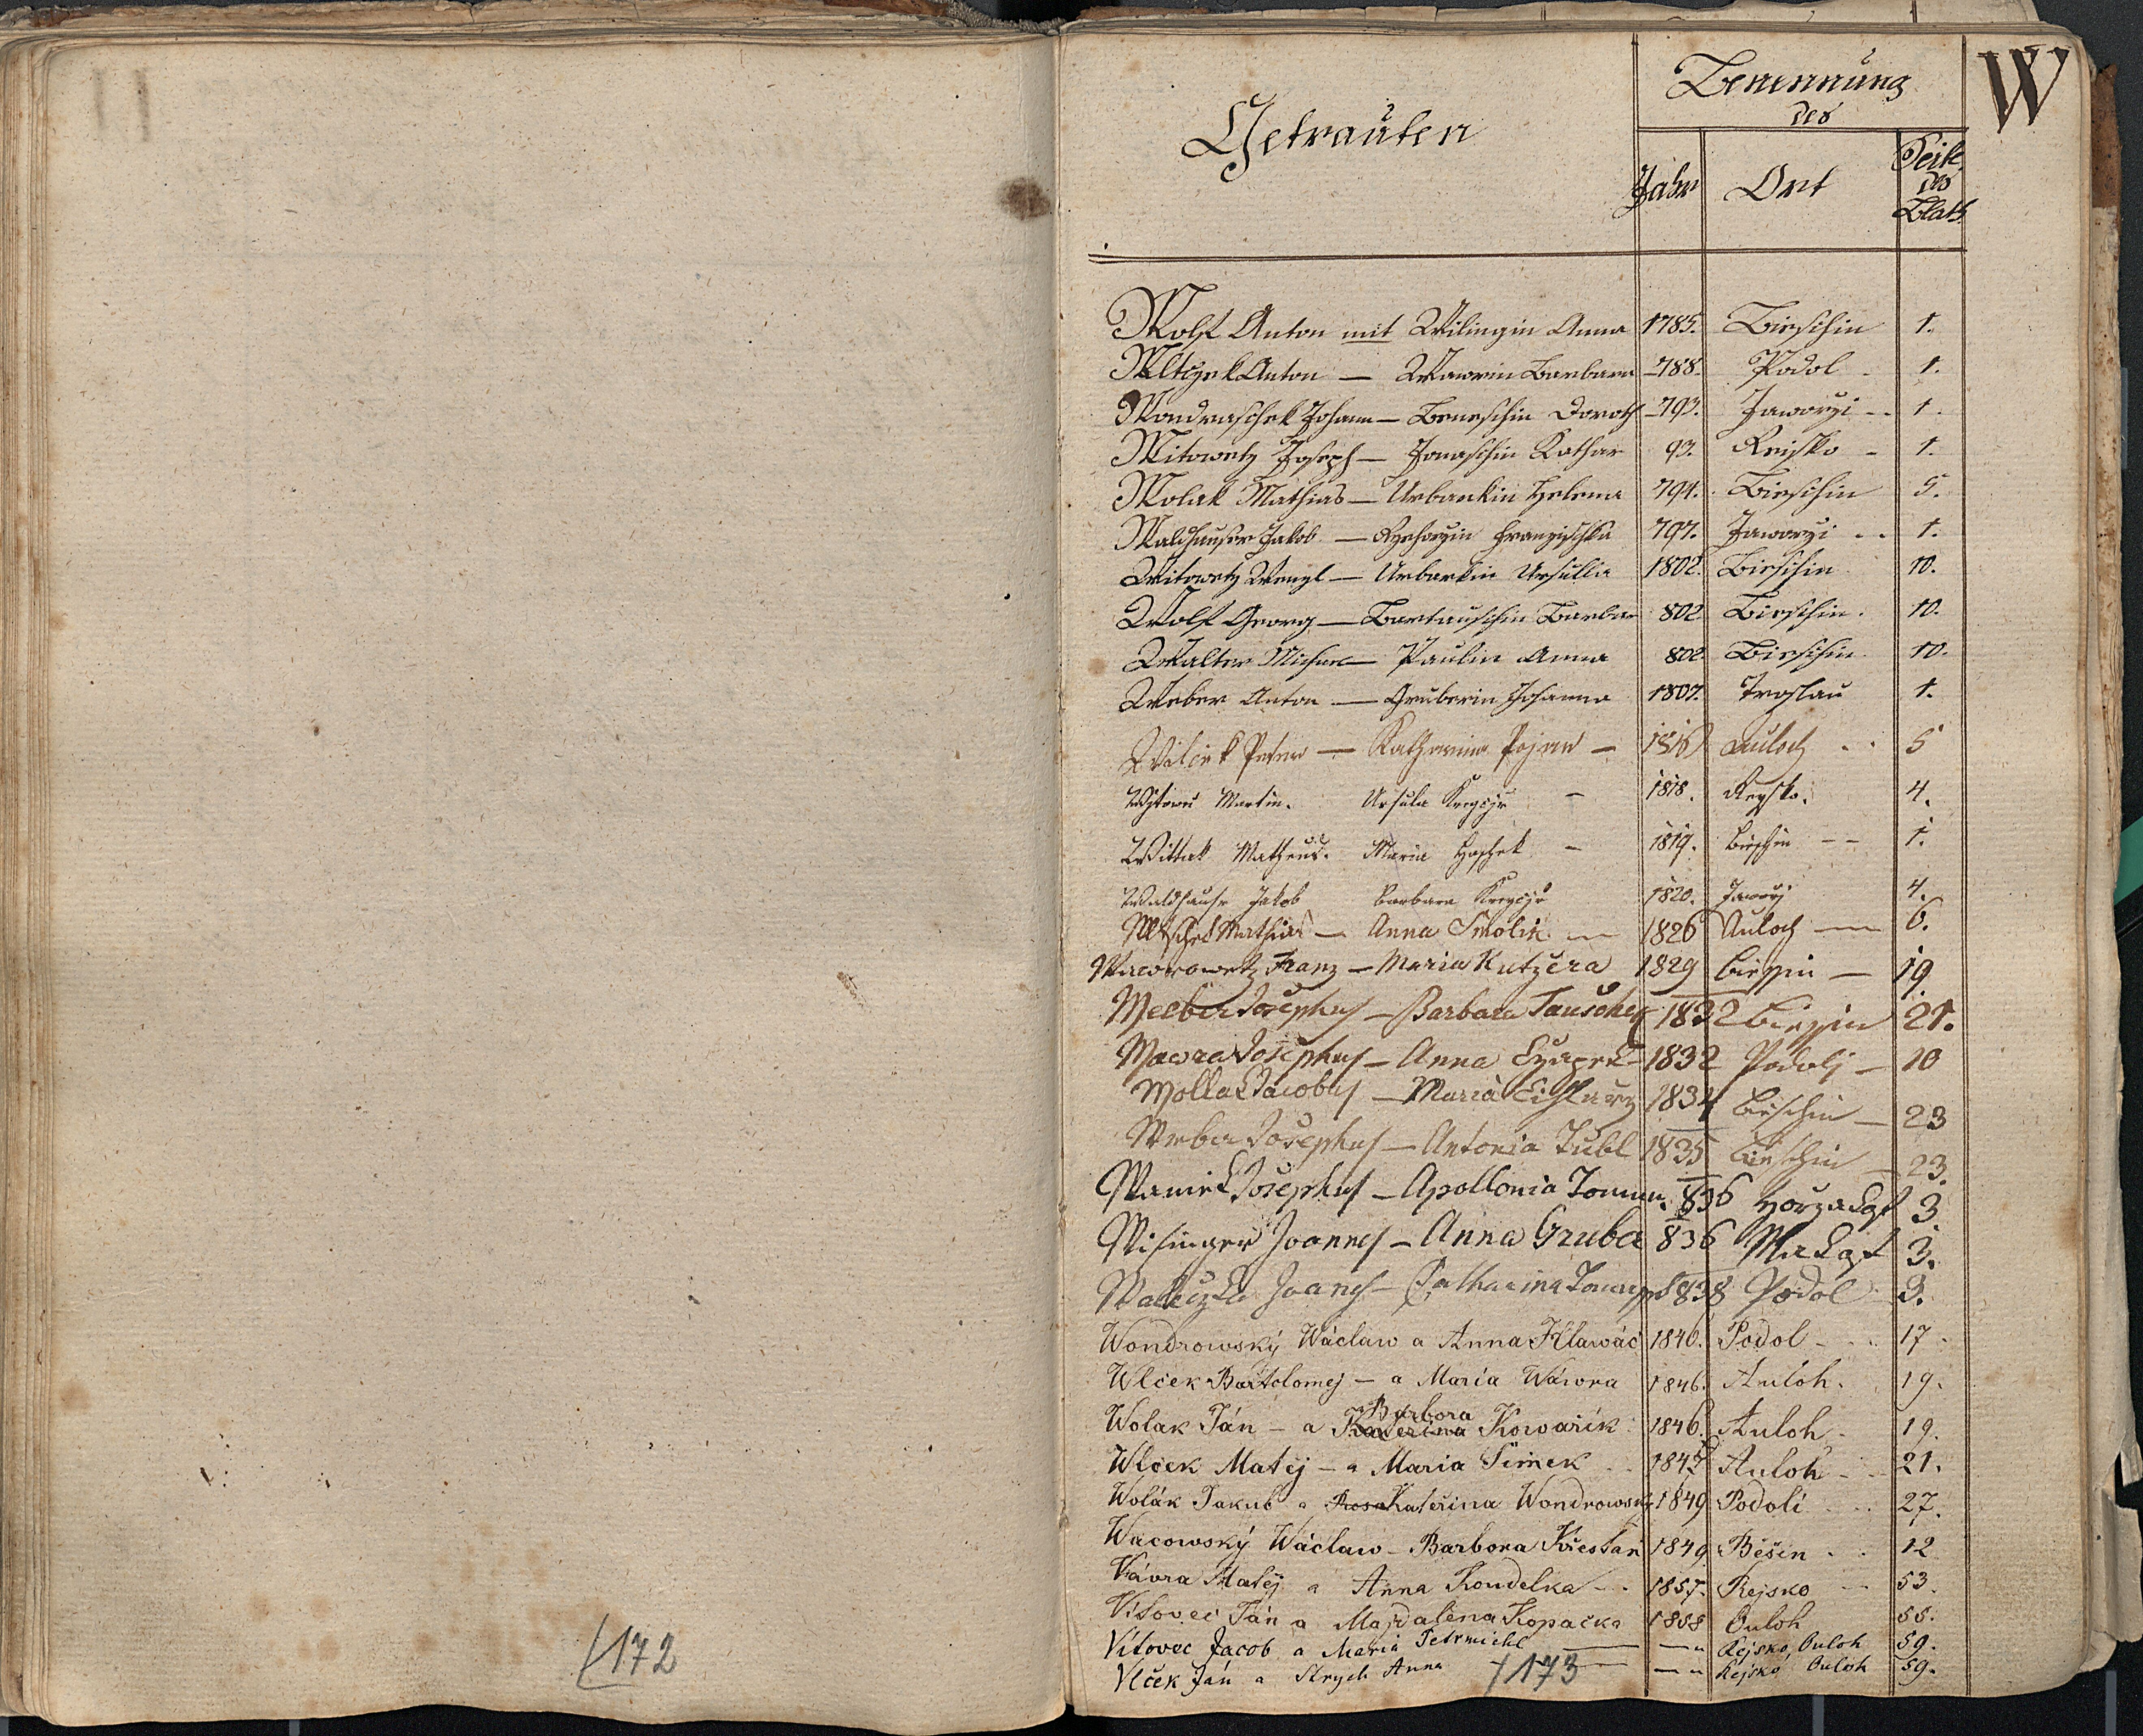 172
W
Getrauten
Benennung
des
Jahr Ort Seite
des
Blats
Wolf Anton mit Wilingin Anna 1785. Bieschin 1.
Wltzek Anton — Wawrin Barbara -788. Podol - 1.
Wondraschek Johann — Beneschin Doroth -793. Jaworzi -- 1.
Witowetz Joseph — Jonaschin Kathar 93. Reisko - 1.
Wolak Mathias — Urbankin Helena 794. Bieschin 5.
Waldhauser Jakob — Franzischka 797. Jaworzi .. 1.
Witowetz Wenzl — Urbankin Ursulla 1802. Bieschin 10.
Wolf Georg — Bartauschin Barbar 802 Bieschin. 10.
Walter Michae — Paulin Anna 802. Bieschin 10.
Weber Anton — Gruberin Johanna 1807. 1.
Wilcek Peter — Katharina Pojar — 1816 Auloch .. 5
Martin. Ursula - 1818. Reysko. 4.
Wittak Matheus. Maria Haschek - 1819. Bieschin -- 1.
Waldhauser Jakob Barbara 1820. Jaworzi 4.
Mathias — Anna Smolik — 1826 Auloch — 6.
Wawrowetz Franz — Maria Kutzera 1829 — 19
Weeber Josephus — Barbara Tauschek 1832 21.
Wawra Josephus — Anna 1832 Podoly — 10
Wollak Jacobus — Maria 1834 Bieschin — 23
Weber Josephus — Antonia Zubl 1835 Bieschin — 23.
Waniek Josephus — Apollonia Toman. 836 3
Wisinger Joannes — Anna Gruber 836 3.
Joanes — Catharina 838 Podol 3.
Wondrowský Wáclaw a Anna Hlawáč 1846. Podol - .. 17.
Wlček Bartolomej — a Maria Wáwra 1846. Auloh. 19.
Barbora
Wolak Ján — a Kateřina Kowařik 1846. Auloh. 19.
Wlček Matěj — a Maria Šimek .. 1847 Auloh - - 21.
Wolák Jakub a Rosa Kateřina Wondrowský 1849 Podolí .. 27.
Wacowský Wáclaw — Barbora Křesťan 1849 Běšin .. 12
Vávra Matěj a Anna Koudelka - . 1857. Rejsko — 53.
Vítovec Ján a Majdalena Kopačka 1858 Ouloh 55.
Vítovec Jacob a Maria Petrmichl — —" Rejsko, Ouloh 59.
Vlček Ján a Strych Anna — —" Rejsko, Ouloh 59.
173